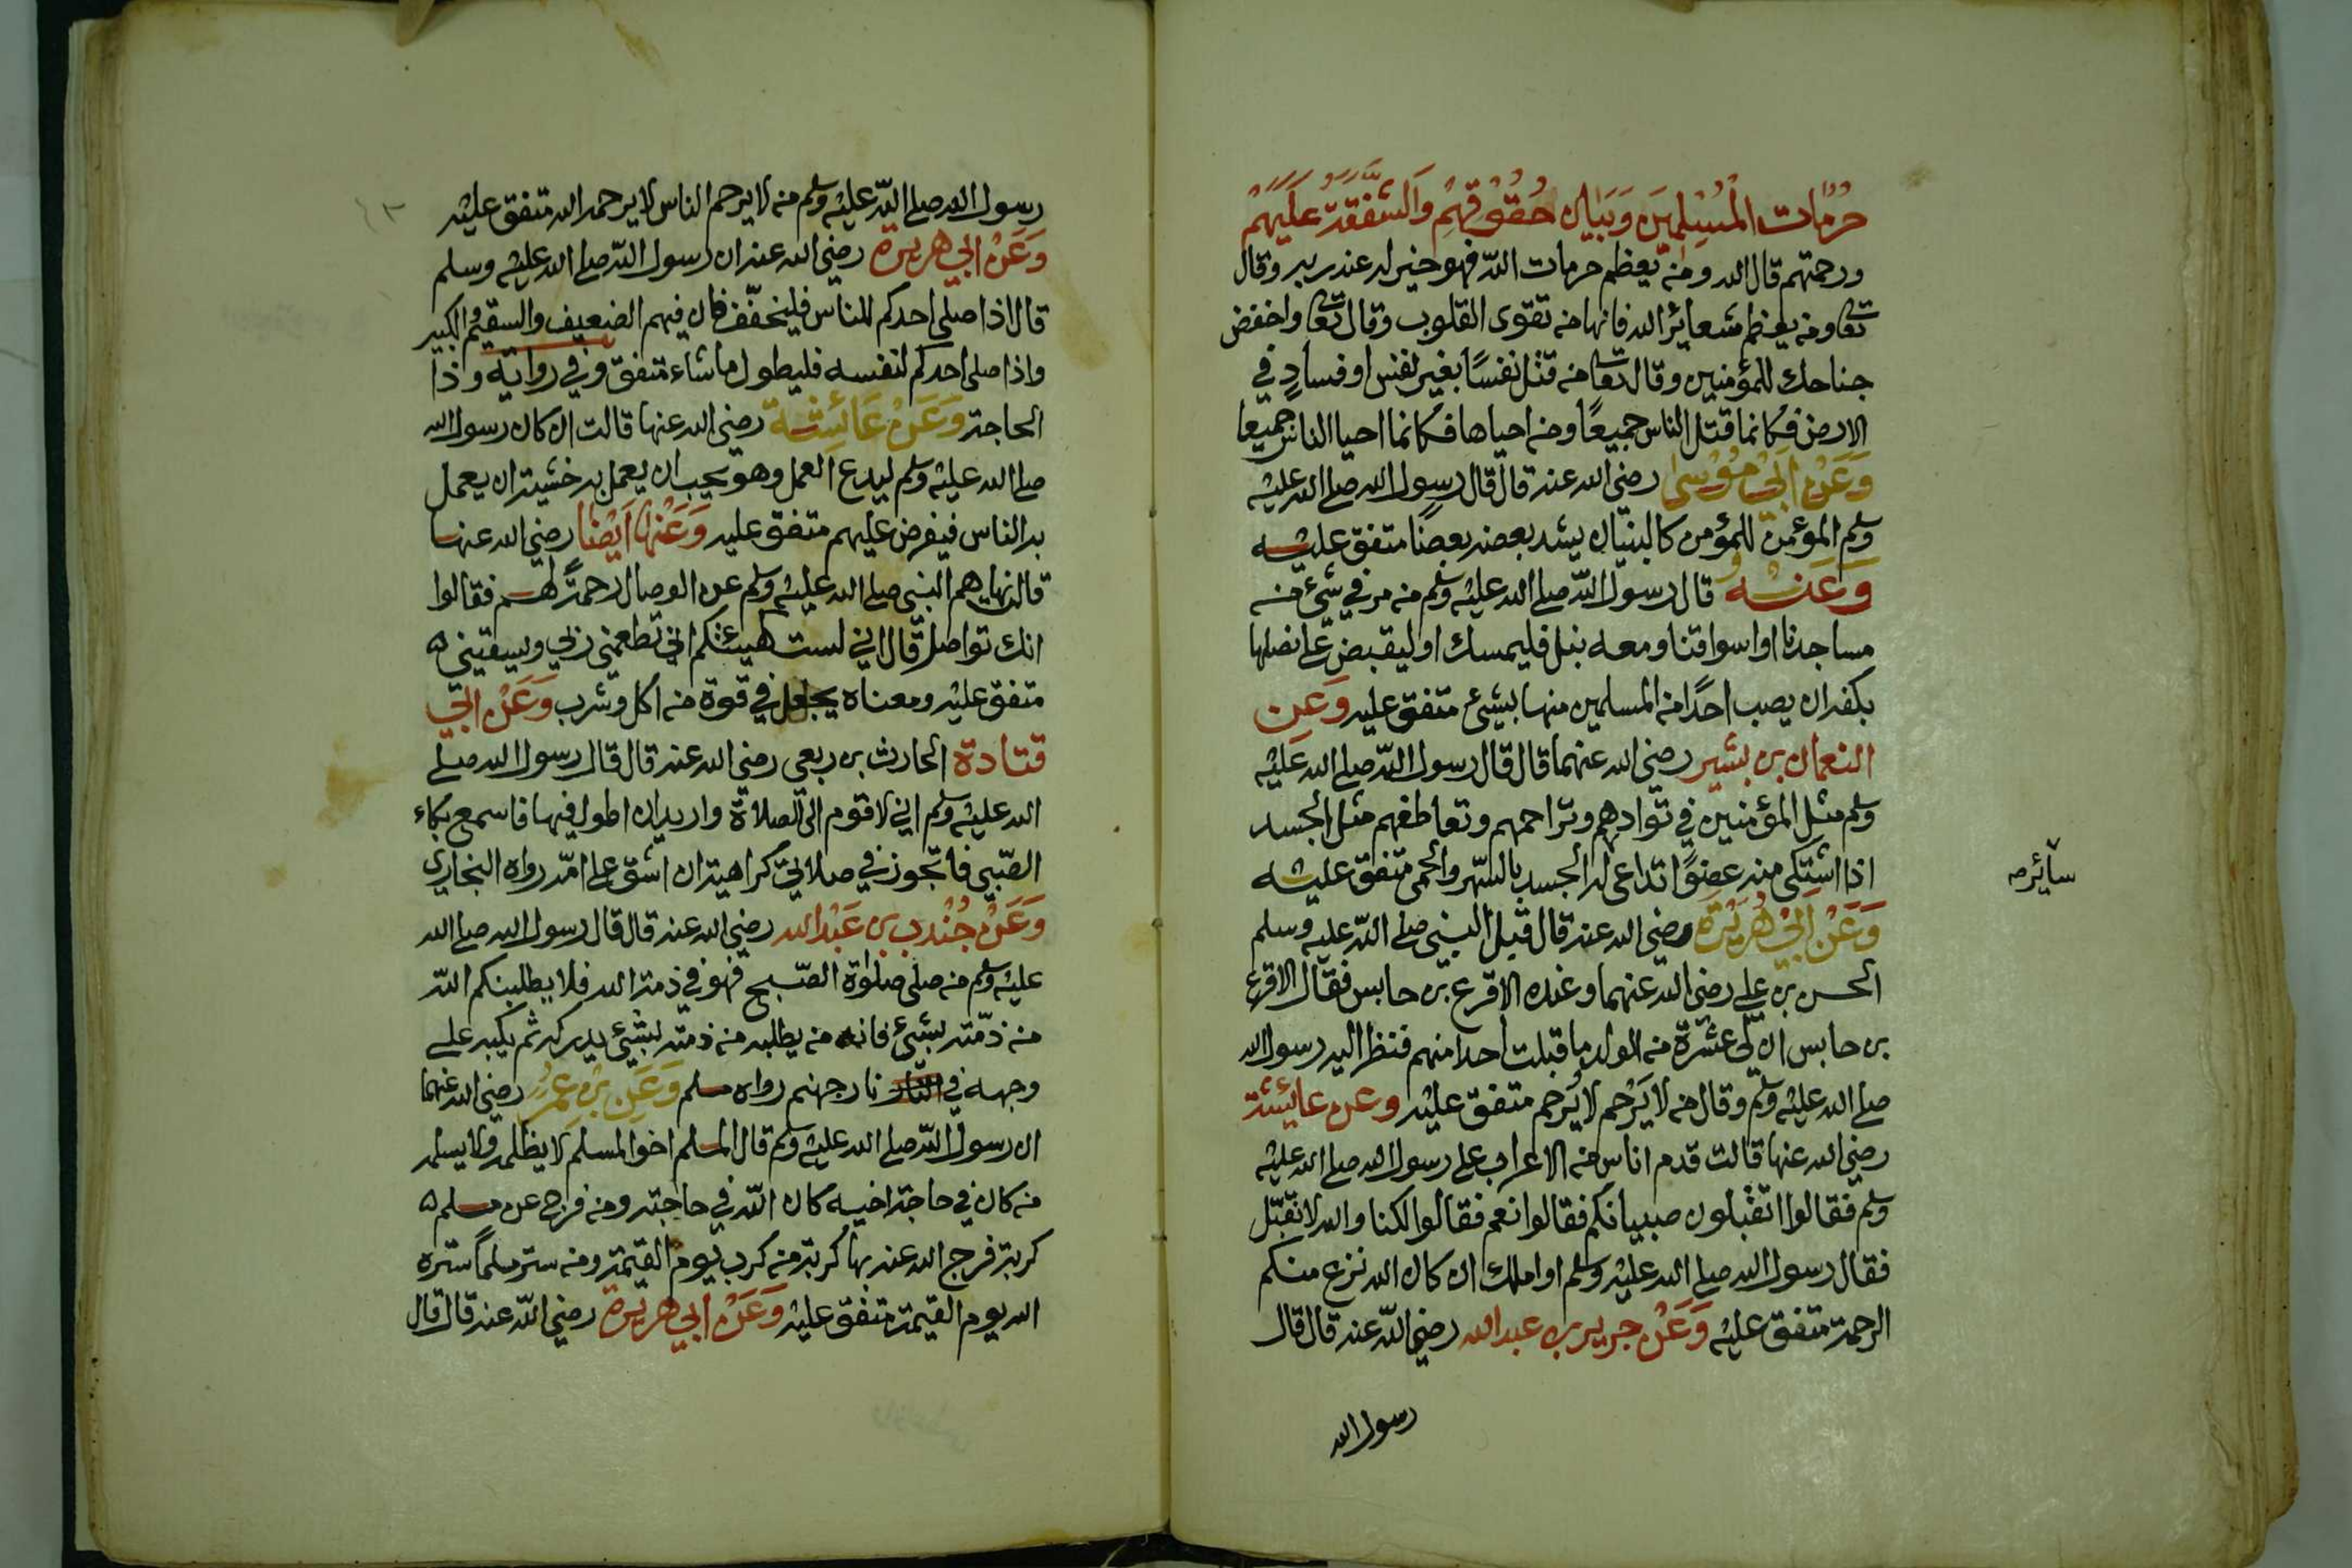 حُرُمَات المُسْلِمِينَ وَبَيَان حُقُوقِهِمْ وَالشَّفَقَة عَلَيْهِمْ
ورحمتهم قال الله ومن يعظم حرمات الله فهو خير له عند ربه وقال
تعا ومن يعظم شعائر الله فانها من تقوى القلوب وقال تعا واخفض
جناحك للمؤمنين وقال تعا من قتل نفسًا بغير نفس او فسادٍ في
الارض فكانما قتل الناس جميعًا ومن احياها فكانما احيا الناس جميعا
وَعَنْ ابِيْ مُوْسى رضي الله عنه قال قال رسول الله صلى الله عليه
وسلم المؤمن للمؤمن كالبنيان يشد بعضه بعضا متفق عليه
وَعَنْهُ قال رسول الله صلى الله عليه وسلم من مر في شيء من
مساجدنا او اسواقنا ومعه نبل فليمسك او ليقبض على نصلها
بكفه ان يصب احدًا من المسلمين منها بشيئ متفق عليه وَعَنِ
النعمان بن بشير رضي الله عنهما قال قال رسول الله صلى الله عليه
وسلم مثل المؤمنين في توادهم وتراحمهم وتعاطفهم مثل الجسد
اذا اشتكى منه عضوًا تداعى له الجسد بالسّهر والحمى متفق عليه
سائر صح
وَعَنْ اَبِيْ هُرَيْرَةَ رضي الله عنه قال قبل النبي صلى الله عليه وسلم
الحسن بن علي رضي الله عنهما وعنده الاقرع بن حابس فقال الاقرع
بن حابس ان لي عشرة من الولد ما قبلت احدا منهم فنظر اليه رسول الله
صلى الله عليه وسلم وقال من لا يَرْحم لا يُرحم متفق عليه وعن عائشة
رضي الله عنها قالت قدم اناس من الاعراب على رسول الله صلى الله عليه
وسلم فقالوا اتقبلون صبيانكم فقالوا نعم فقالوا لكنا والله لا نقبّل
فقال رسول الله صلى الله عليه وسلم او املك ان كان الله نزع منكم
الرحمة متفق عليه وَعَنْ جرير بن عبد الله رضي الله عنه قال قال
رسول الله
رسول الله صلى الله عليه وسلم من لا يرحم الناس لا يرحمه الله متفق عليه
وَعَنْ ابي هريرة رضي الله عنه ان رسول الله صلى الله عليه وسلم
قال اذا صلى احدكم للناس فليخفّف فان فيهم الضعيف والسقيم والكبير
واذا صلى احدكم لنفسه فليطول ما شاء متفق وفي رواية وذا
الحاجة وَعَنْ عَائِشَة رضي الله عنها قالت ان كان رسول الله
صلى الله عليه وسلم ليدع العمل وهو يحب ان يعمل به خشية ان يعمل
به الناس فيفرض عليهم متفق عليه وَعَنْهَا اَيْضًا رضي الله عنها
قالت نهاهم النبي صلى الله عليه وسلم عن الوصال رحمةً لهم فقالوا
انك تواصل قال اني لست كهيئتكم اني يطعمني ربي ويسقيني
متفق عليه ومعناه يجعل في قوة من اكل وشرب وَعَنْ ابي
قتادة الحارث بن ربعي رضي الله عنه قال قال رسول الله صلى
الله عليه وسلم اني لاقوم الى الصلاة واريد ان اطول فيها فاسمع بكاء
الصّبي فاتجوز في صلاتي كراهية ان اشق على امّه رواه البخاري
وَعَنْ جُنْدب بن عَبْد الله رضي الله عنه قال قال رسول الله صلى الله
عليه وسلم من صلى صلوة الصّبح فهو في ذمة الله فلا يطلبنكم الله
من ذمّته بشيئ فانه من يطلبه من ذمته بشيئ يدركه ثم يكبه على
وجهه في النار نار جهنم رواه مسلم وَعَنِ بْنِ عُمَر رضي الله عنهما
ان رسول الله صلى الله عليه وسلم قال المسلم اخو المسلم لا يظلمه ولا يسلمه
من كان في حاجة اخيه كان الله في حاجته ومن فرج عن مسلم
كربة فرج الله عنه بها كربة من كرب يوم القيمة ومن ستر مسلمًا ستره
الله يوم القيمة متفق عليه وَعَنْ ابي هريرة رضي الله عنه قال قال